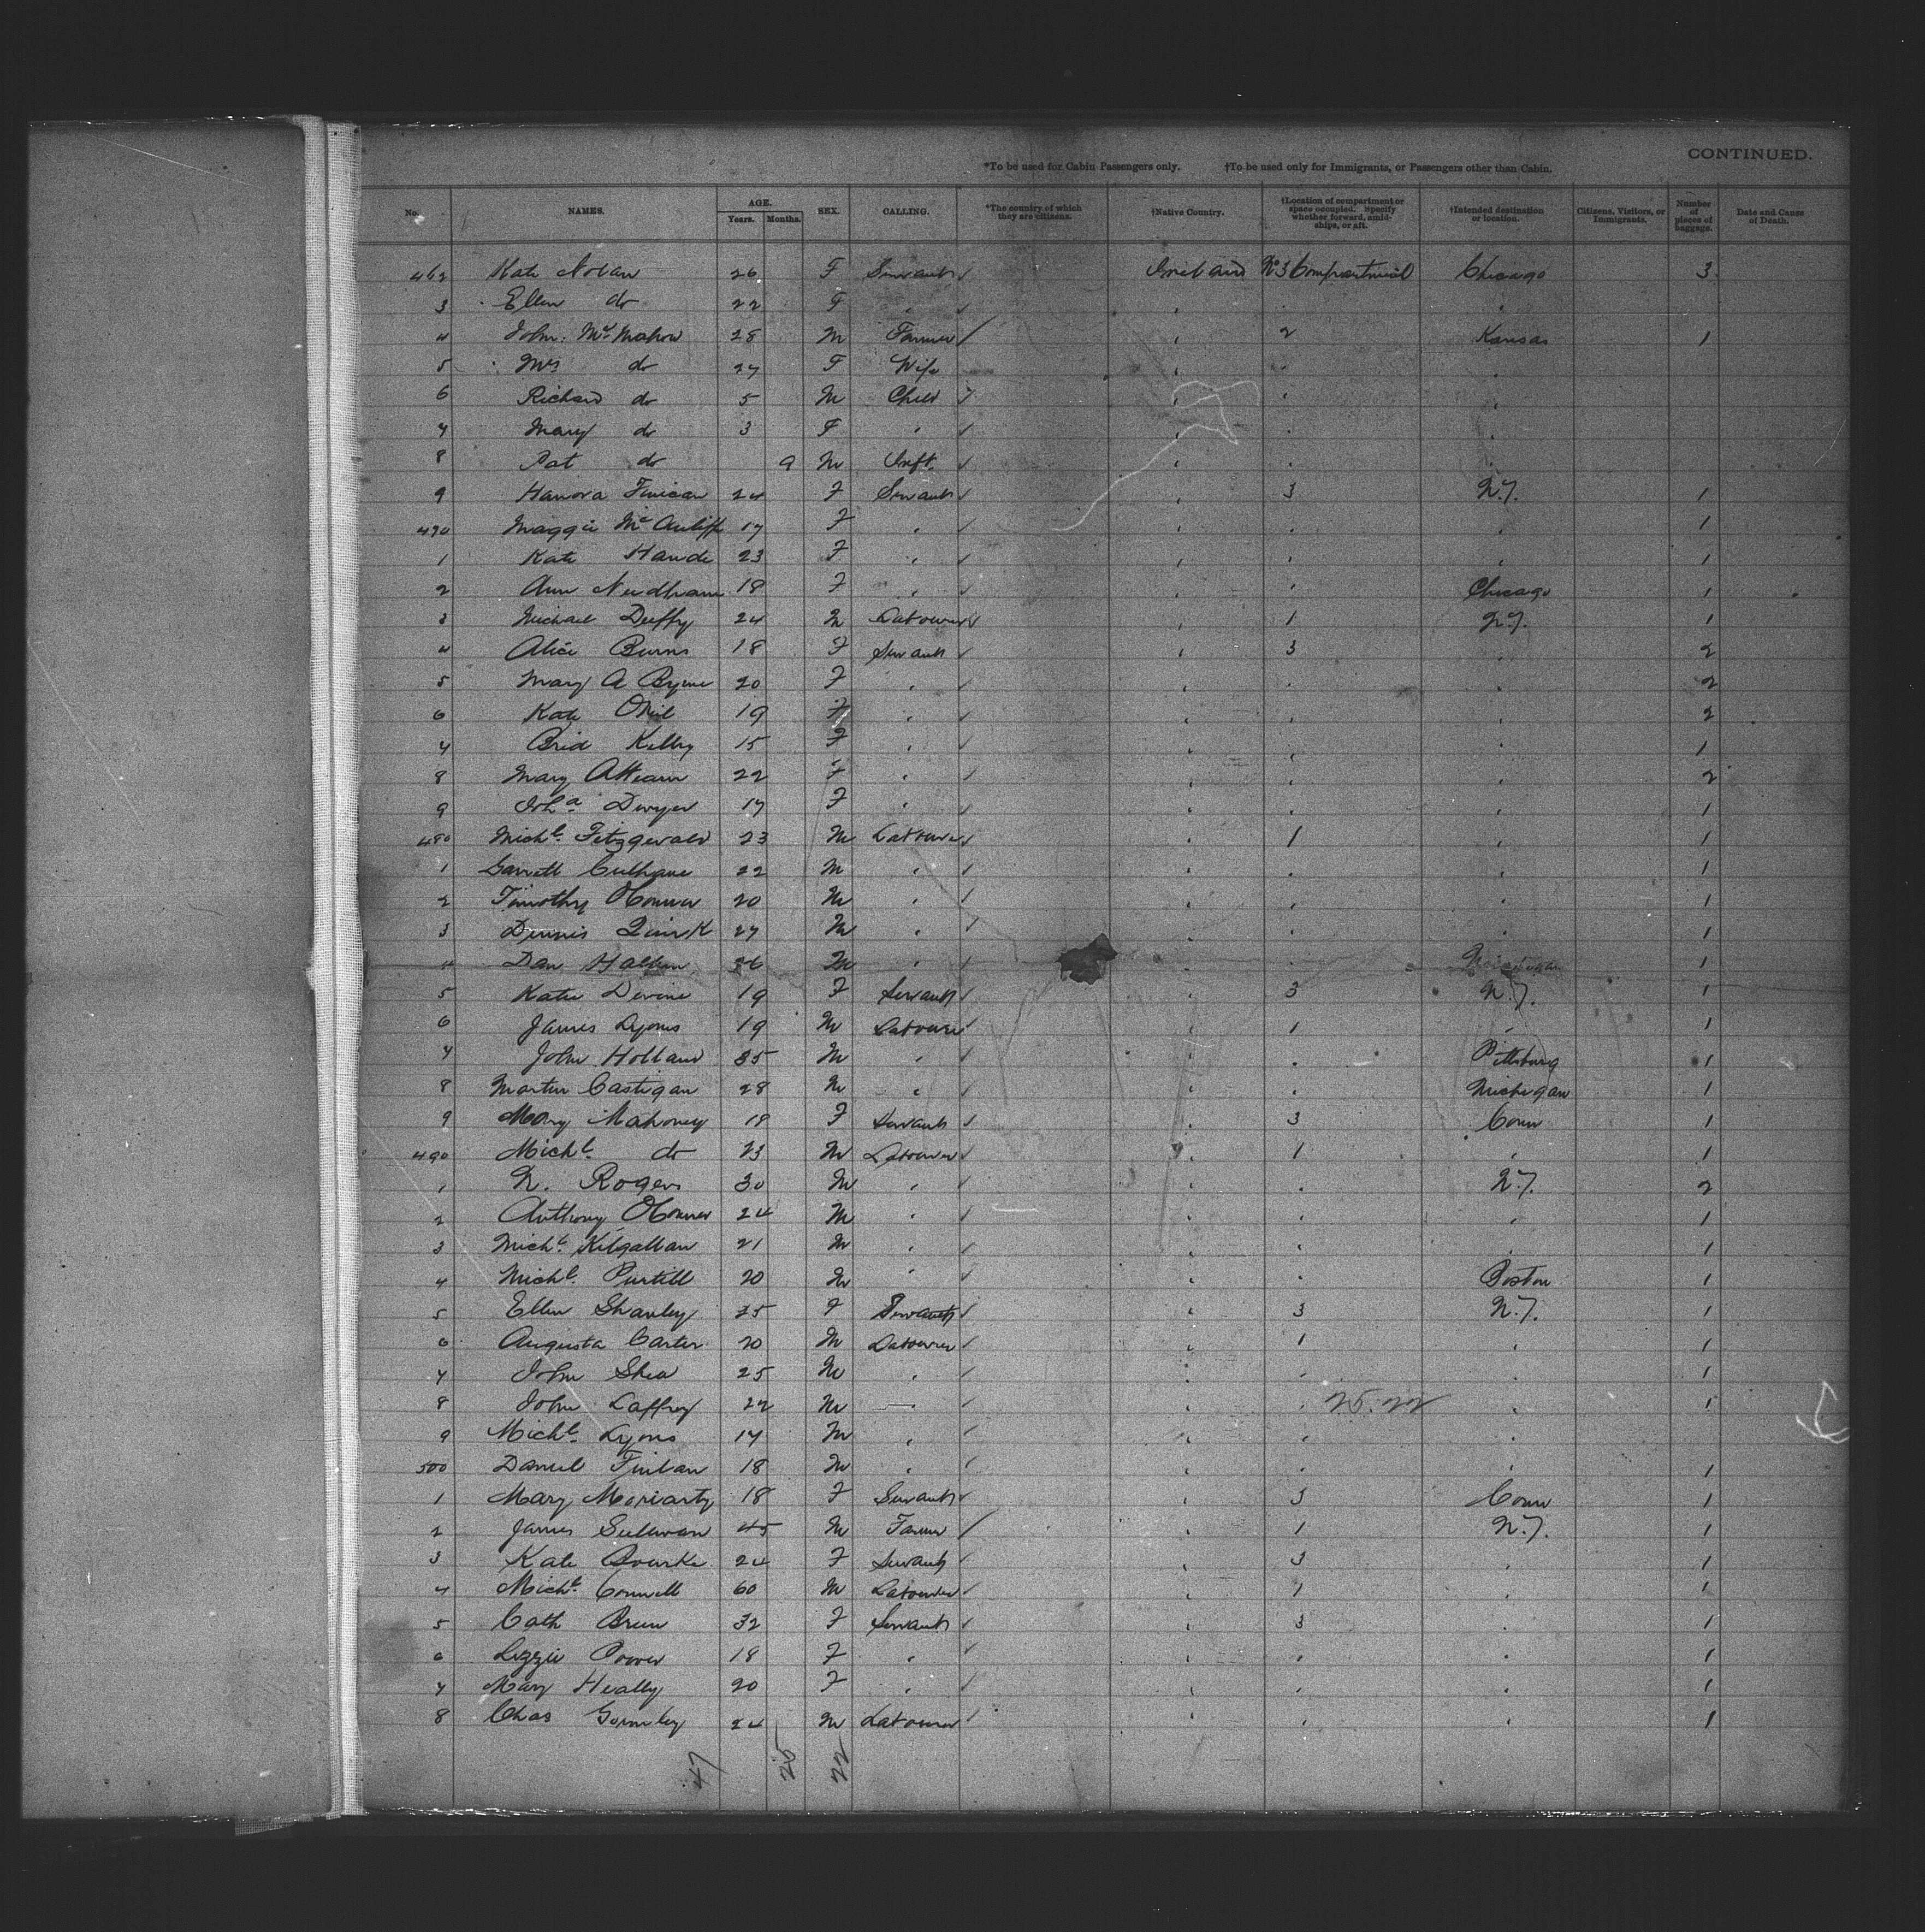 CONTINUED.
*To be used for Cabin Passengers only. †To be used only for Immigrants, or Passengers other than Cabin.
No. NAMES. AGE. Years. Months. SEX. CALLING. *The country of which they are citizens. †Native Country. †Location of compartment or space occupied. Specify whether forward, amidships, or aft. †Intended destination or location. Citizens, Visitors, or Immigrants. Number of pieces of baggage. Date and Cause of Death.
462 Kate Nolan 26 F Servant Ireland No 3 Compartment Chicago 3
3 Ellen do 22 F
4 John McMahon 28 M Farmer 2 Kansas 1
5 Mrs do 27 F Wife
6 Richard do 5 M Child
7 Mary do 3 F
8 Pat do 9 M Inft.
9 Hanora Finican 24 F Servant 3 N.Y. 1
470 Maggie McAuliffe 17 F 1
1 Kate 23 F 1
2 Ann Needham 18 F Chicago 1
3 Michael Duffy 24 M Labourer 1 N.Y. 1
4 Alice Burns 18 F Servant 3 2
5 Mary A Byrne 20 F 2
6 Kate ONeil 19 F 2
7 Brid Kelly 15 F 1
8 Mary AHearn 22 F 2
9 Joha Dwyer 17 F 1
480 Michl. Fitzgerald 23 M Labourer 1 1
1 Garrett Culhane 22 M 1
2 Timothy OConnor 20 M 1
3 Dennis Quirk 27 M 1
4 Dan 26 M Michigan 1
5 Kate Devine 19 F Servant 3 N.Y. 1
6 James Lyons 19 M Labourer 1 1
7 John Holland 35 M Pittsburg 1
8 Martin Castigan 28 M Michigan 1
9 Mary Mahoney 18 F Servant 3 Conn 1
490 Michl. do 23 M Labourer 1 1
1 N. Rogers 30 M N.Y. 2
2 Anthony OConnor 24 M 1
3 Michl. Kilgallan 21 M 1
4 Michl. Purtill 20 M Boston 1
5 Ellen Shanley 25 F Servant 3 N.Y. 1
6 Augusta Carter 20 M Labourer 1 1
7 John Shea 25 M 1
8 John Laffey 22 M 25.22 1
9 Michl. Lyons 17 M
500 Daniel Finlan 18 M 1
1 Mary Moriarty 18 F Servant 3 Conn 1
2 James Sullivan 45 M Farmer 1 N.Y. 1
3 Kate Rourke 24 F Servant 3 1
4 Michl. Connell 60 M Labourer 1 1
5 Cath Breen 32 F Servant 3 1
6 Lizzie Power 18 F 1
7 Mary Heally 20 F 1
8 Chas Gormley 24 M Labourer 1
47 25 22